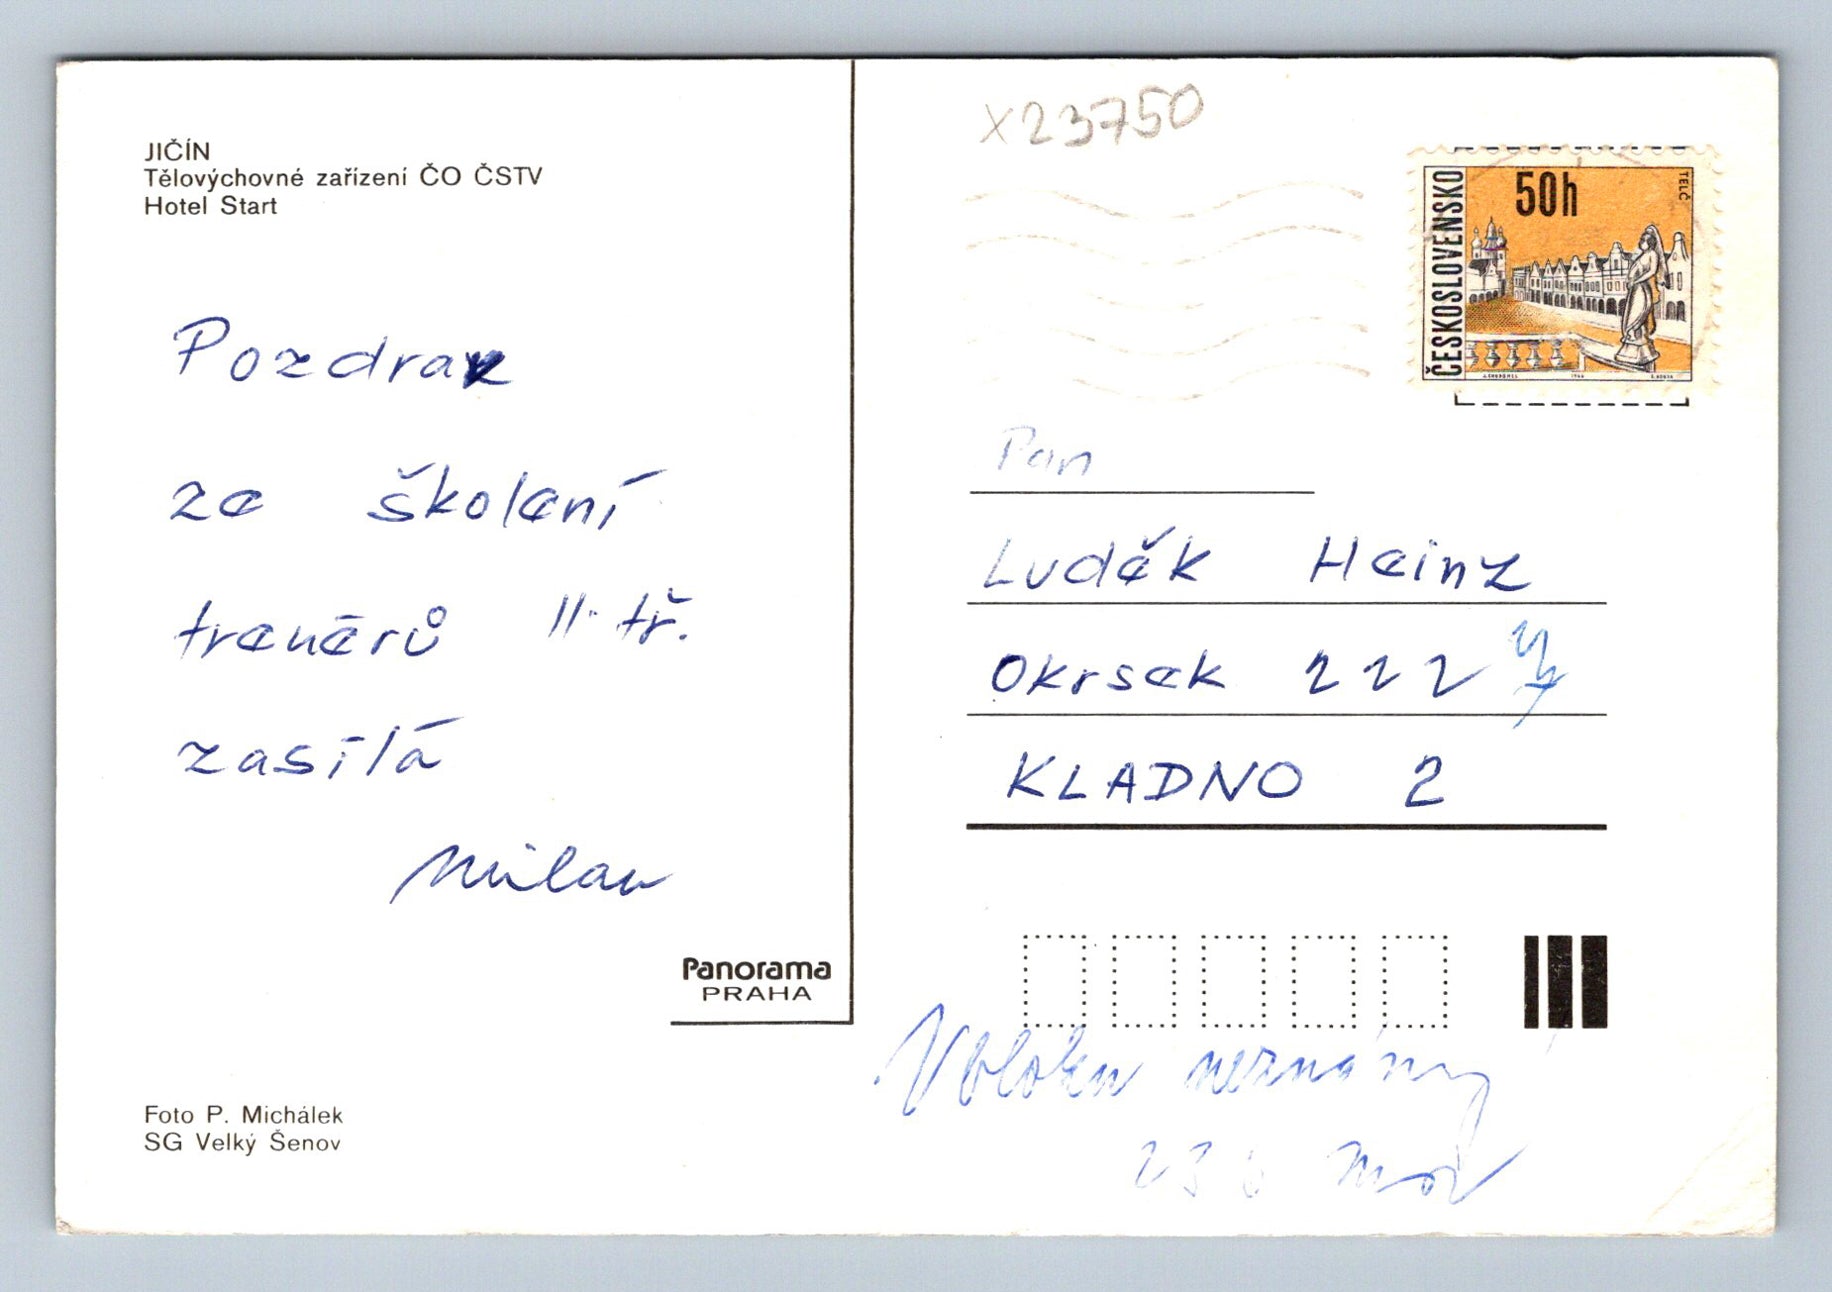 JIČÍN
Tělovýchovné zařízení ČO ČSTV
Hotel Start
Pozdrav
ze školení
trenérů II. tř.
zasílá
Milan
Panorama
PRAHA
Foto P. Michálek
SG Velký Šenov
X23750
ČESKOSLOVENSKO
50h
TELČ
1966
Pan
Luděk Heinz
Okrsek 222
KLADNO 2
V bloku neznámý